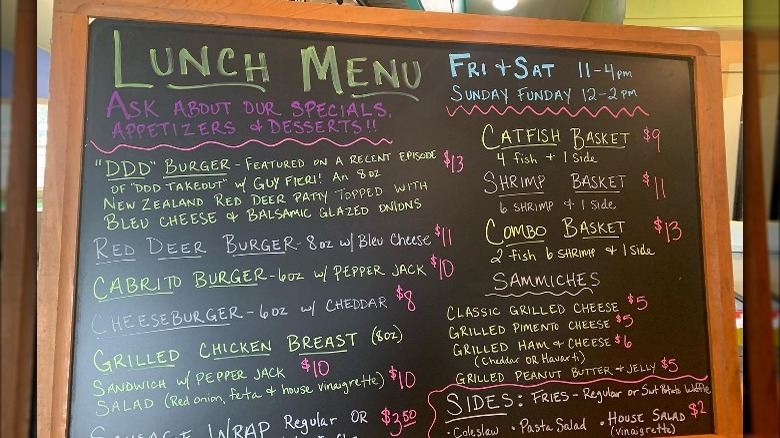 LUNCH MENU
ASK ABOUT OUR SPECIALS,
APPETIZERS & DESSERTS!!
"DDD" BURGER - FEATURED ON A RECENT EPISODE $13
OF "DDD TAKEOUT" W/ GUY FIERI! AN 8OZ
NEW ZEALAND RED DEER PATTY TOPPED WITH
BLEU CHEESE & BALSAMIC GLAZED ONIONS
RED DEER BURGER - 8OZ W/ BLEU CHEESE $11
CABRITO BURGER - 6OZ W/ PEPPER JACK $10
CHEESEBURGER - 6OZ W/ CHEDDAR $8
GRILLED CHICKEN BREAST (8OZ)
SANDWICH W/ PEPPER JACK $10
SALAD (Red onion, feta & house vinaigrette) $10
SAUSAGE WRAP Regular OR $3.50
FRI + SAT 11-4pm
SUNDAY FUNDAY 12-2pm
CATFISH BASKET $9
4 fish + 1 side
SHRIMP BASKET $11
6 shrimp & 1 side
COMBO BASKET $13
2 fish 6 shrimp & 1 side
SAMMICHES
CLASSIC GRILLED CHEESE $5
GRILLED PIMENTO CHEESE $5
GRILLED HAM & CHEESE $6
(Cheddar or Havarti)
GRILLED PEANUT BUTTER & JELLY $5
SIDES: FRIES - Regular or Swt Potato Waffle
• Coleslaw • Pasta Salad • HOUSE SALAD $2
(vinaigrette)